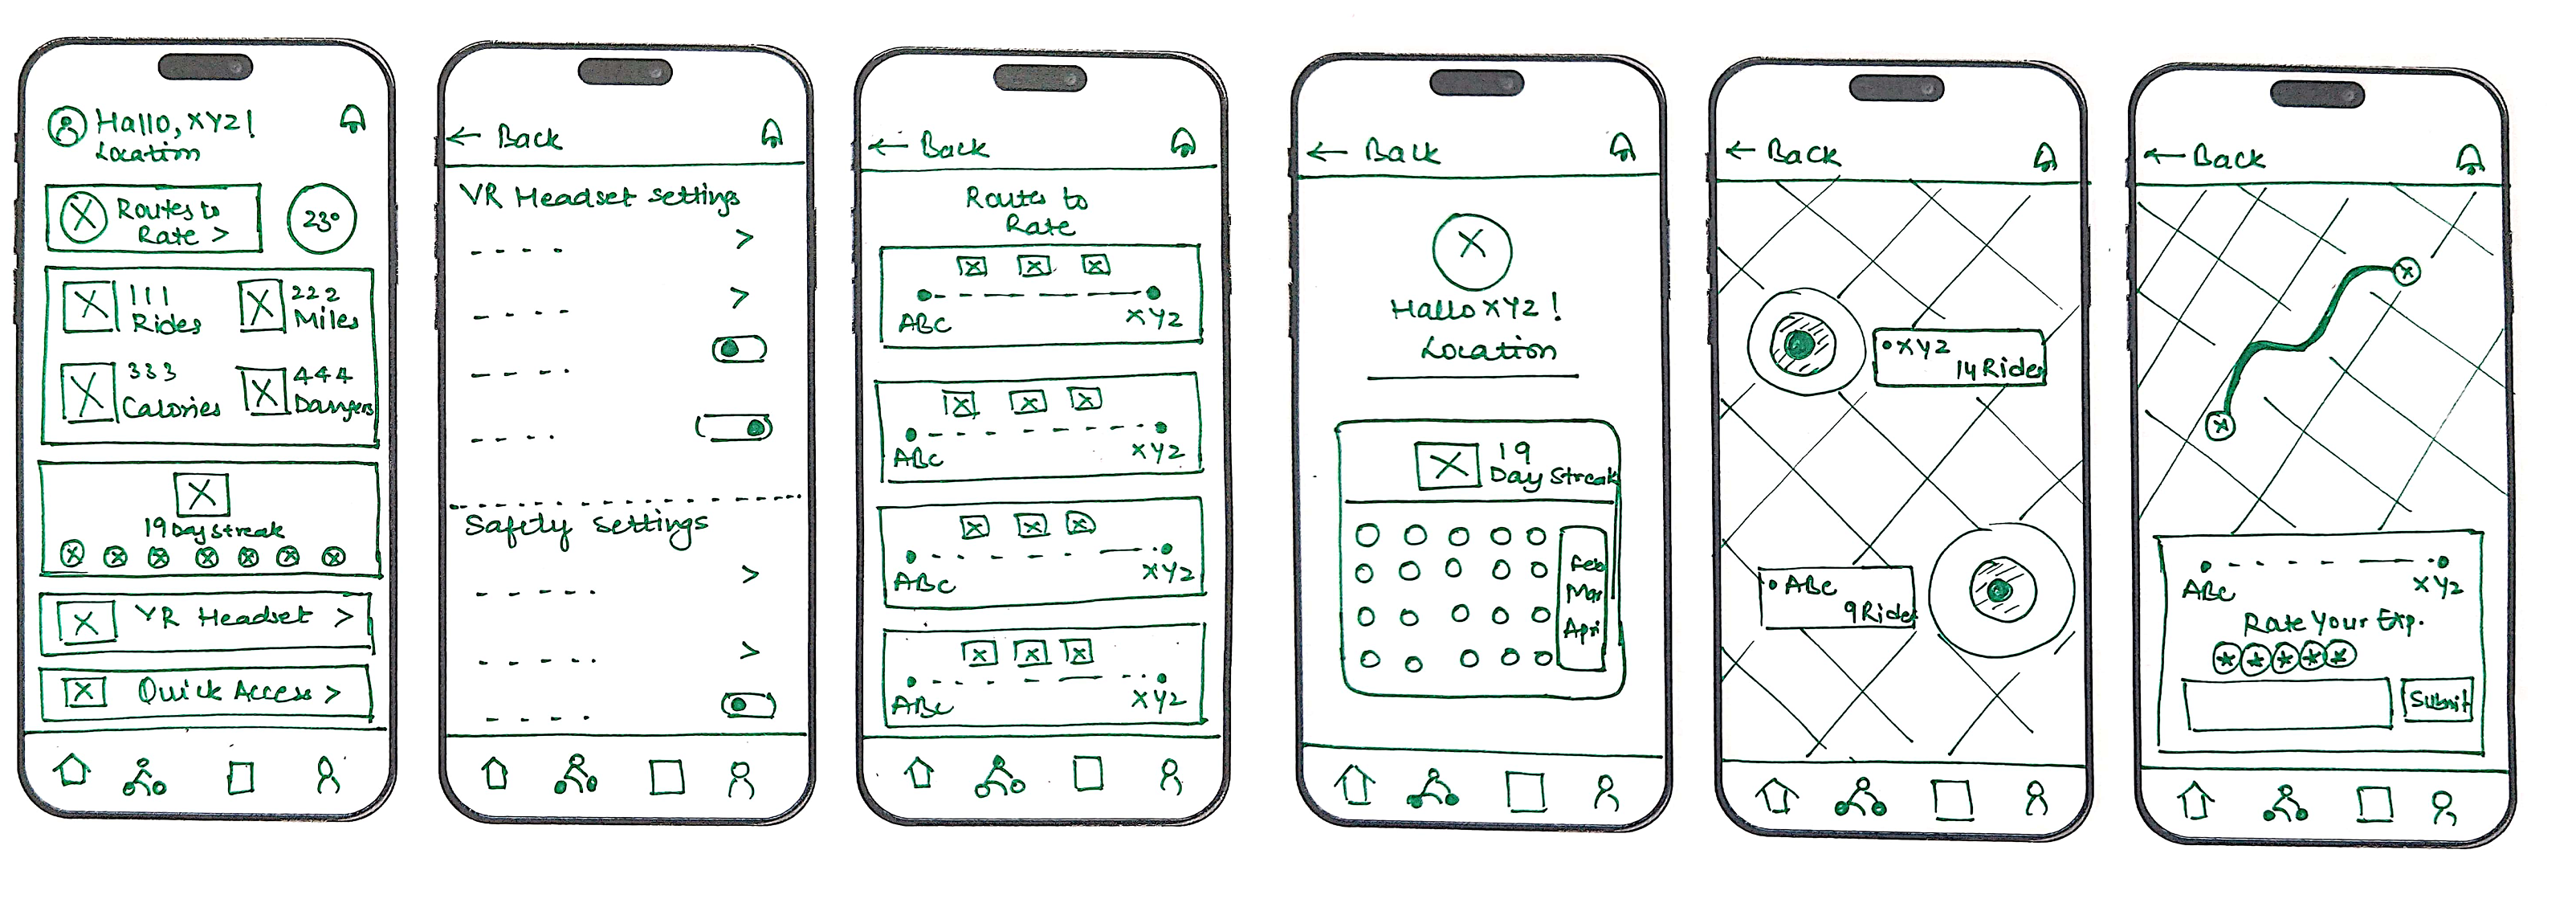 Hallo, XYZ!
Location
Routes to
Rate >
23°
111
Rides
222
Miles
333
Calories
444
Dangers
19 Day Streak
VR Headset >
Quick Access >
← Back
VR Headset settings
>
>
Safety settings
>
>
← Back
Routes to
Rate
ABC
XYZ
ABC
XYZ
ABC
XYZ
ABC
XYZ
← Back
Hallo XYZ!
Location
19
Day Streak
Feb
Mar
Apri
← Back
XYZ
14 Rides
ABC
9 Rides
← Back
ABC
XYZ
Rate Your Exp.
Submit